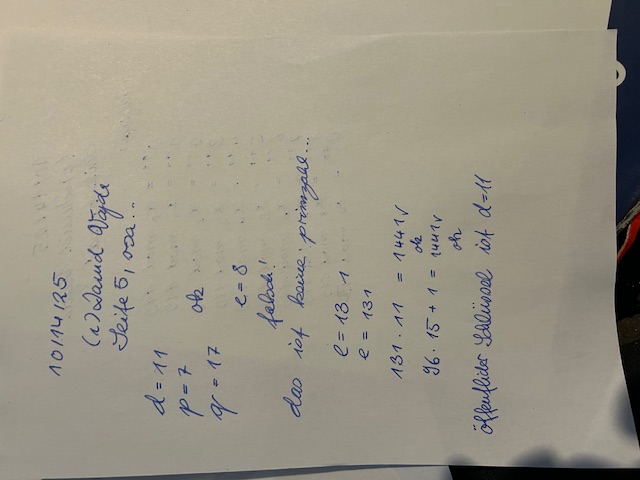 10/14/25
(c) David Vajda
Seite 5, rsa...
d = 11
p = 7 ok
q = 17
e = 8
falsch!
das ist keine primzahl...
e = 13 1
e = 131
131 · 11 = 1441 √
ok
96 · 15 + 1 = 1441 √
ok
öffentlicher Schlüssel ist d = 11